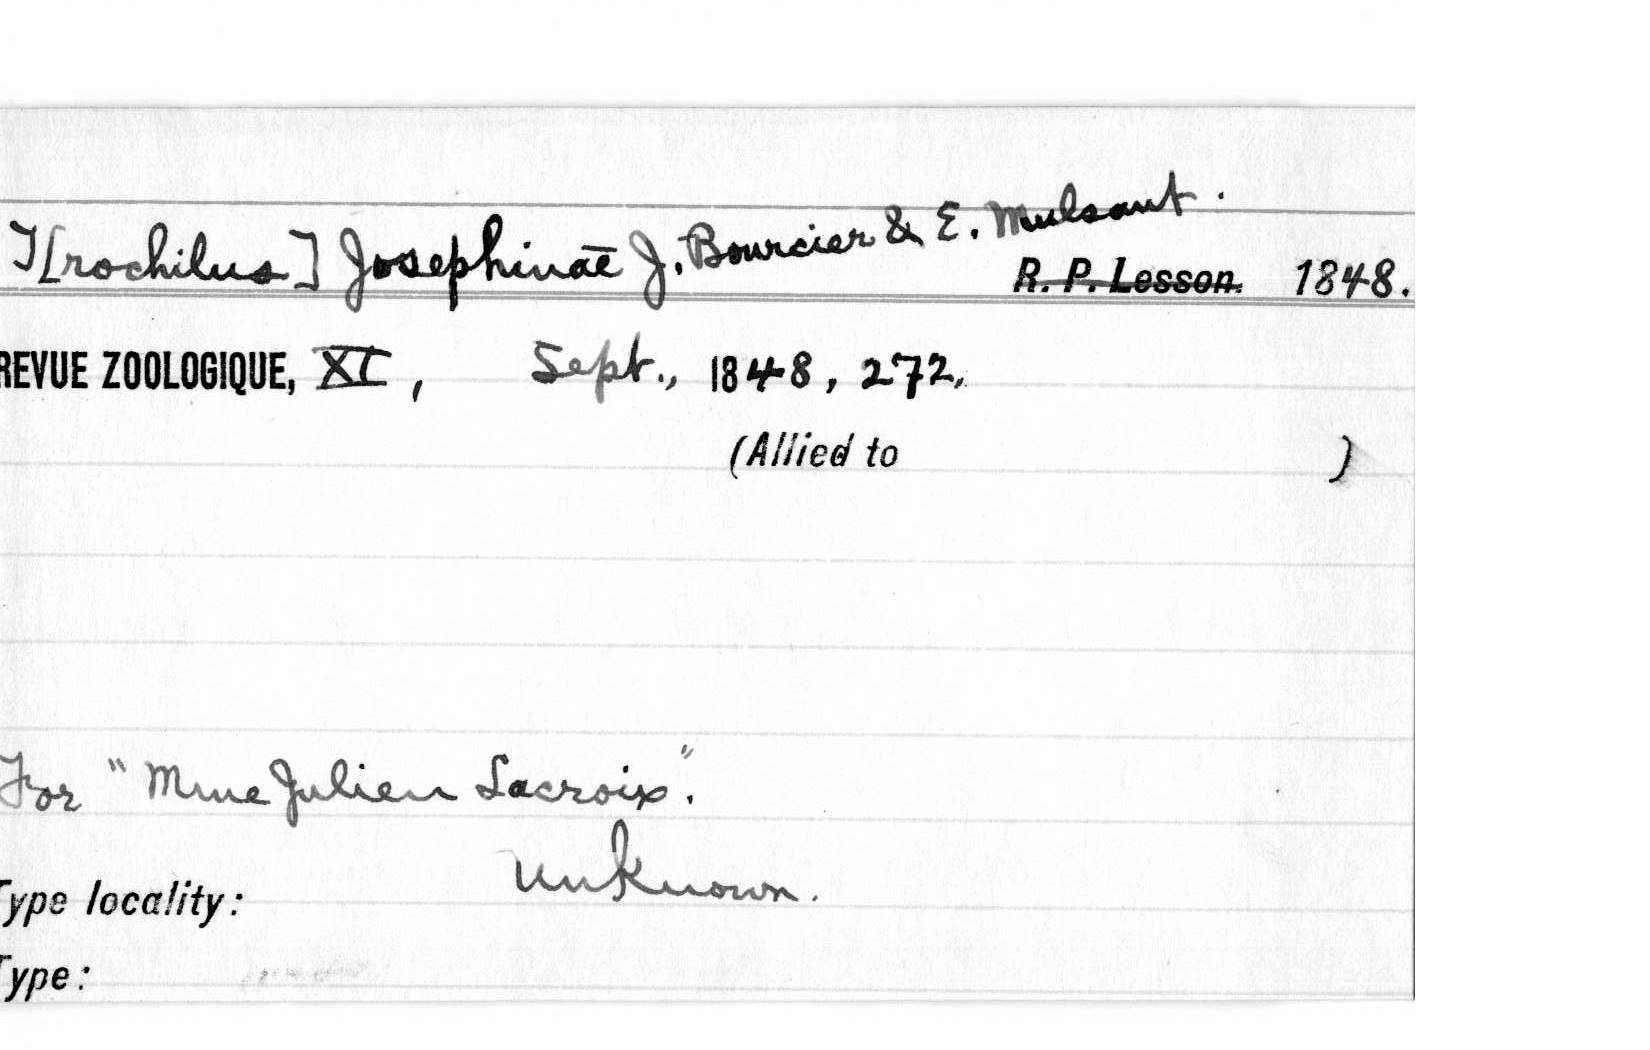 T[rochilus] Josephinae J. Bourcier & E. Mulsant.
R. P. Lesson. 1848.
REVUE ZOOLOGIQUE, XI, Sept., 1848, 272,
(Allied to )
For "Mme Julien Lacroix".
Unknown.
Type locality:
Type: